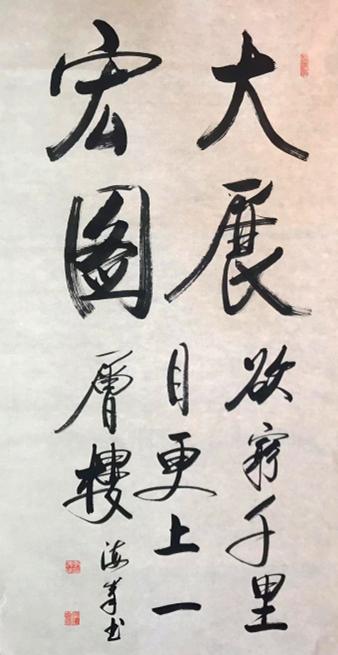 大展
宏图
欲穷千里
目更上一
層樓
海峯书